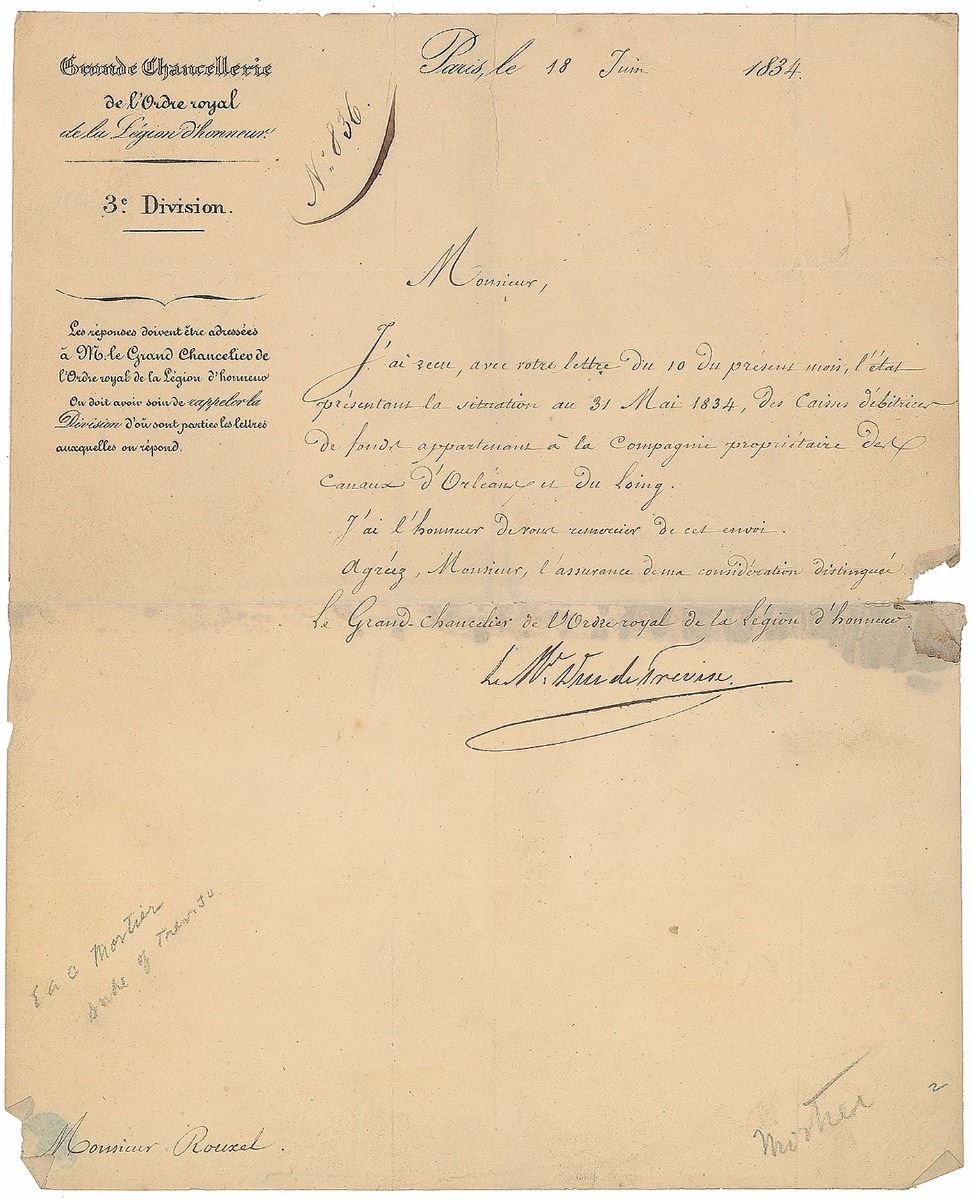 Grande Chancellerie
de l'Ordre royal
de la Légion d'honneur
3e. Division.
Les réponses doivent être adressées
à M. le Grand Chancelier de
l'Ordre royal de la Légion d'honneur
On doit avoir soin de rappeler la
Division d'où sont parties les lettres
auxquelles on répond.
Paris, le 18 Juin 1834.
N°. 836.
Monsieur,
J'ai reçu, avec votre lettre du 10 du présent mois, l'état
présentant la situation au 31 Mai 1834, des Caisses débitrices
de fonds appartenant à la Compagnie propriétaire des
Canaux d'Orléans et du Loing.
J'ai l'honneur de vous remercier de cet envoi.
Agréez, Monsieur, l'assurance de ma considération distinguée.
Le Grand-Chancelier de l'Ordre royal de la Légion d'honneur.
Le Mal. Duc de Trévise.
E A C Mortier
Duke of Treviso
Mortier
2
Monsieur Rouxel.